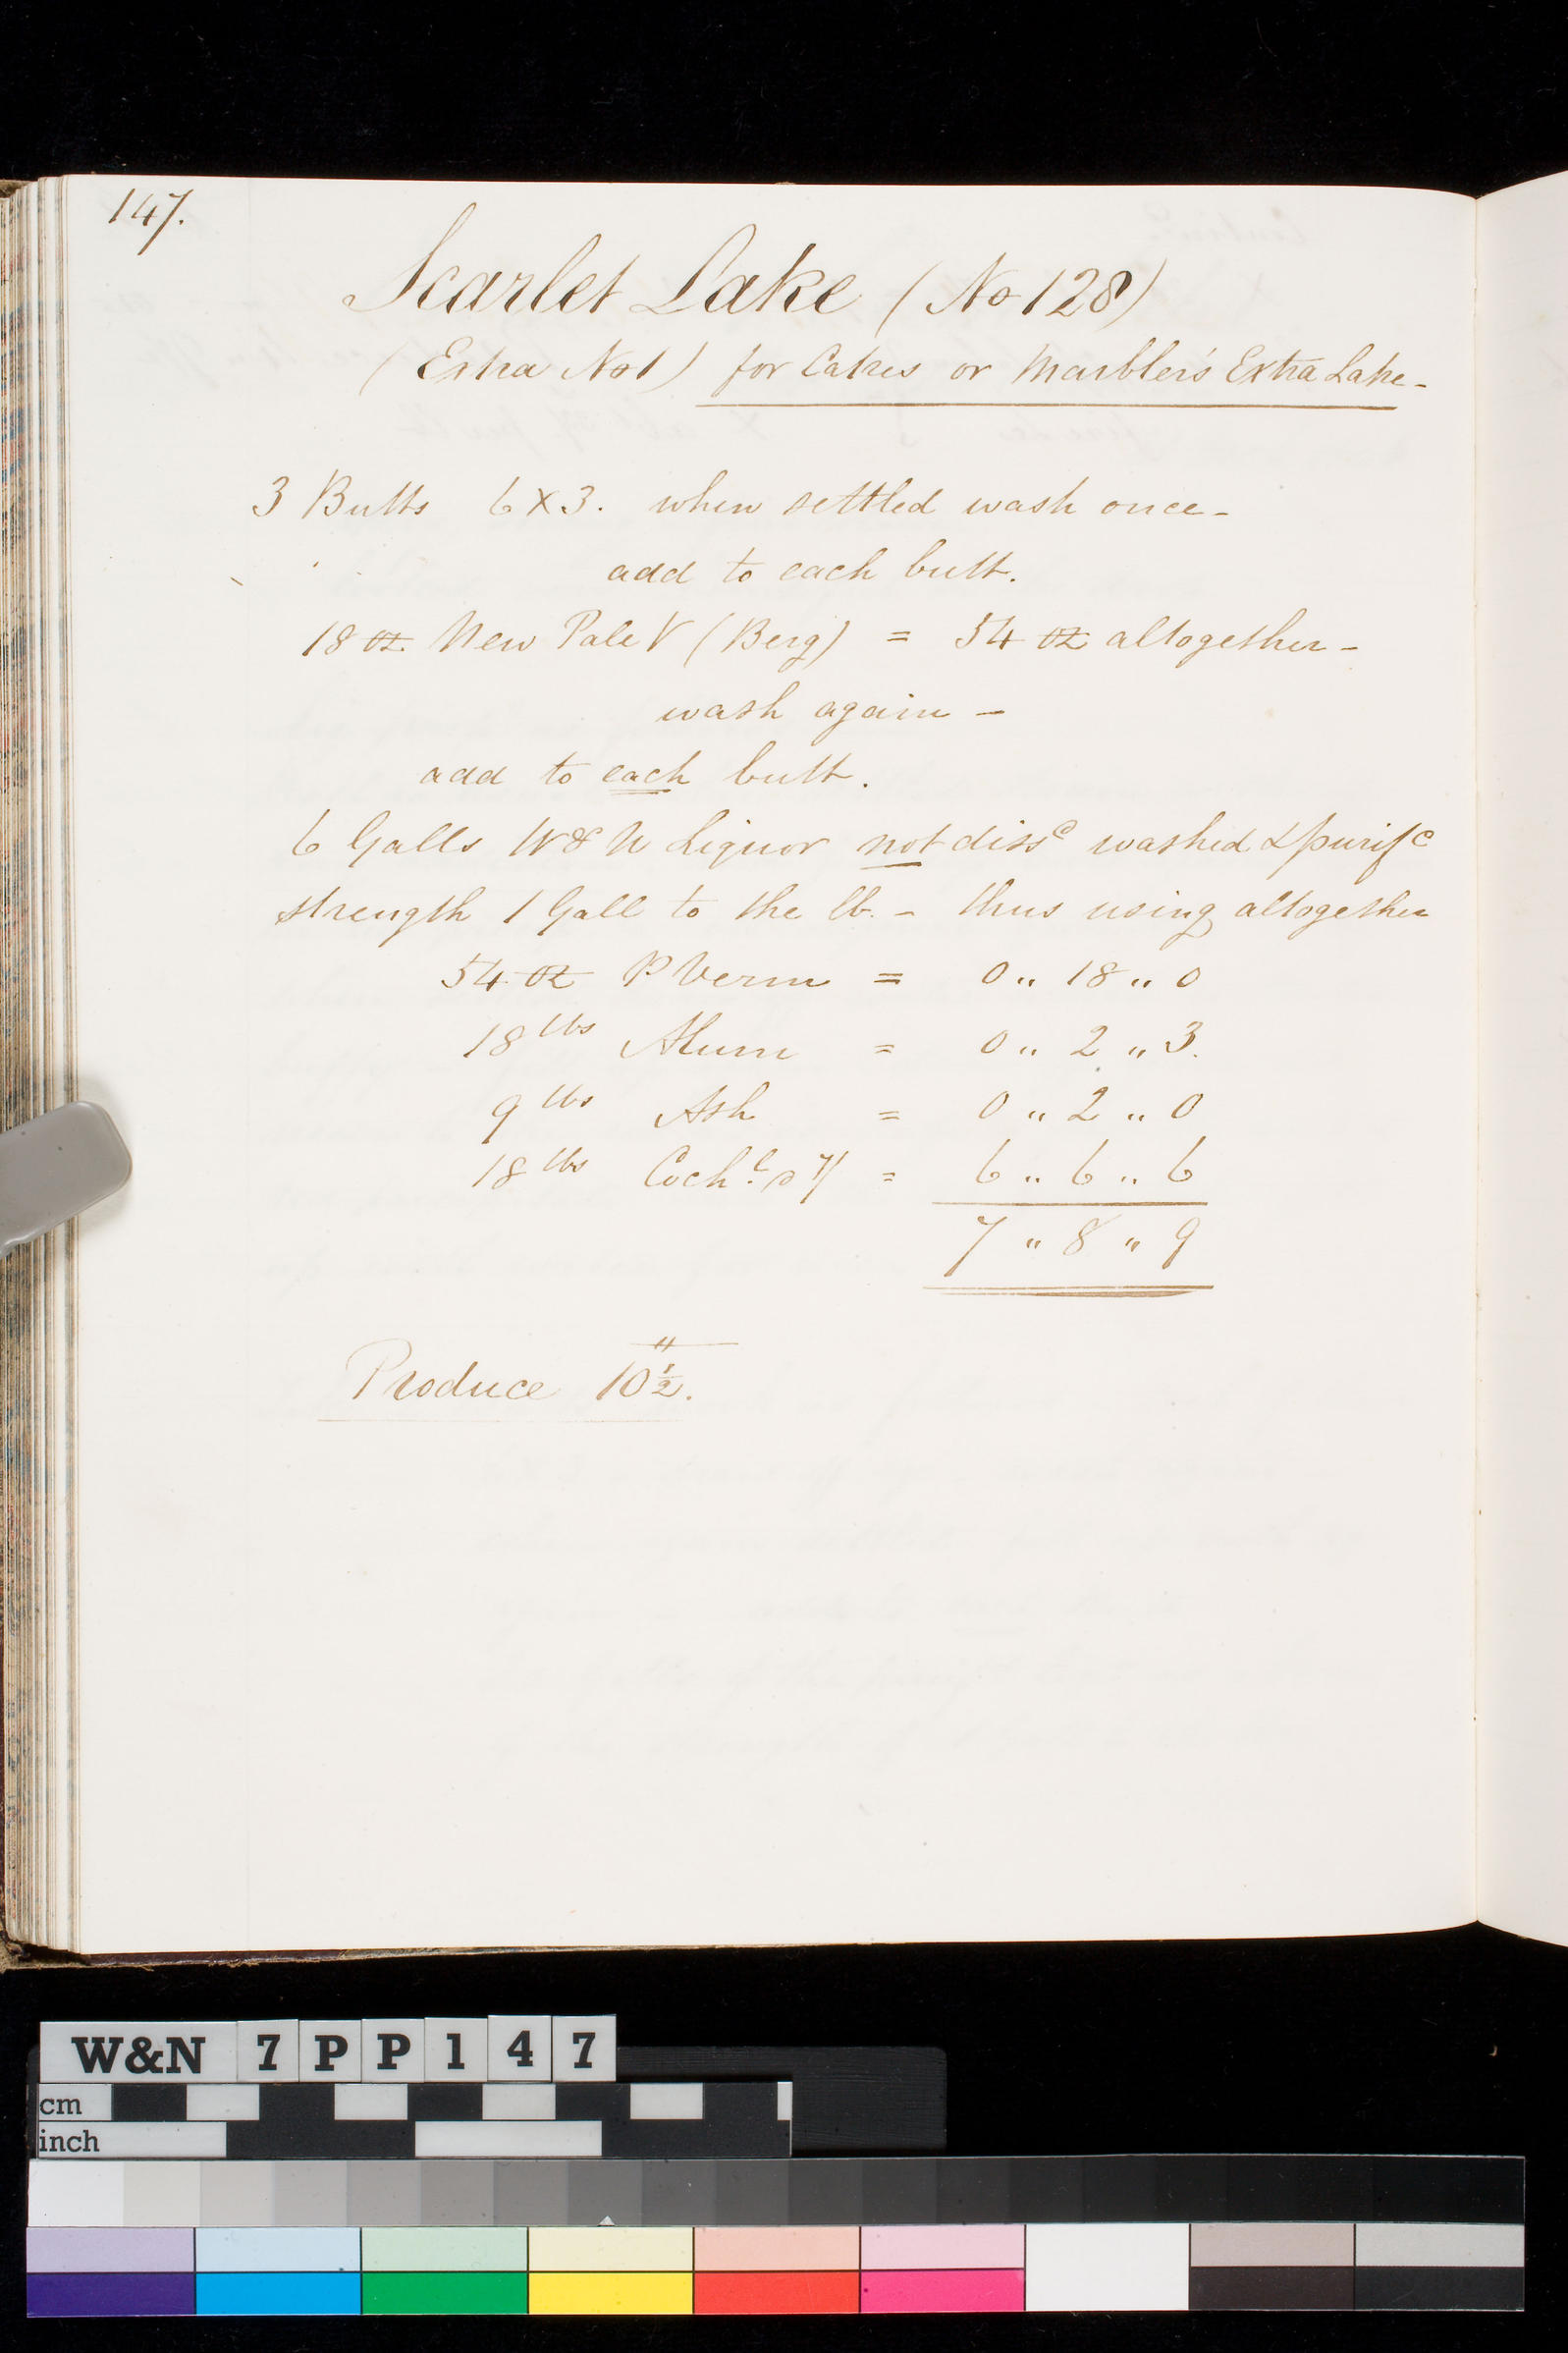 147.
Scarlet Lake (No 128)
(Extra No 1) for Cakes or Marbler's Extra Lake -
3 Butts 6 X 3. when settled wash once -
add to each butt.
18 oz. New Pale V (Berg) = 54 oz altogether -
wash again -
add to each butt.
6 Galls W & N Liquor not dissd washed & purifd
strength 1 Gall to the lb. - thus using altogether
54 oz P Verm = 0 " 18 " 0
18 lbs Alum = 0 " 2 " 3.
9 lbs Ash = 0 " 2 " 0
18 lbs Cochl = 6 " 6 " 6
7 " 8 " 9
Produce 10 1/2.
W&N 7PP147
cm
inch